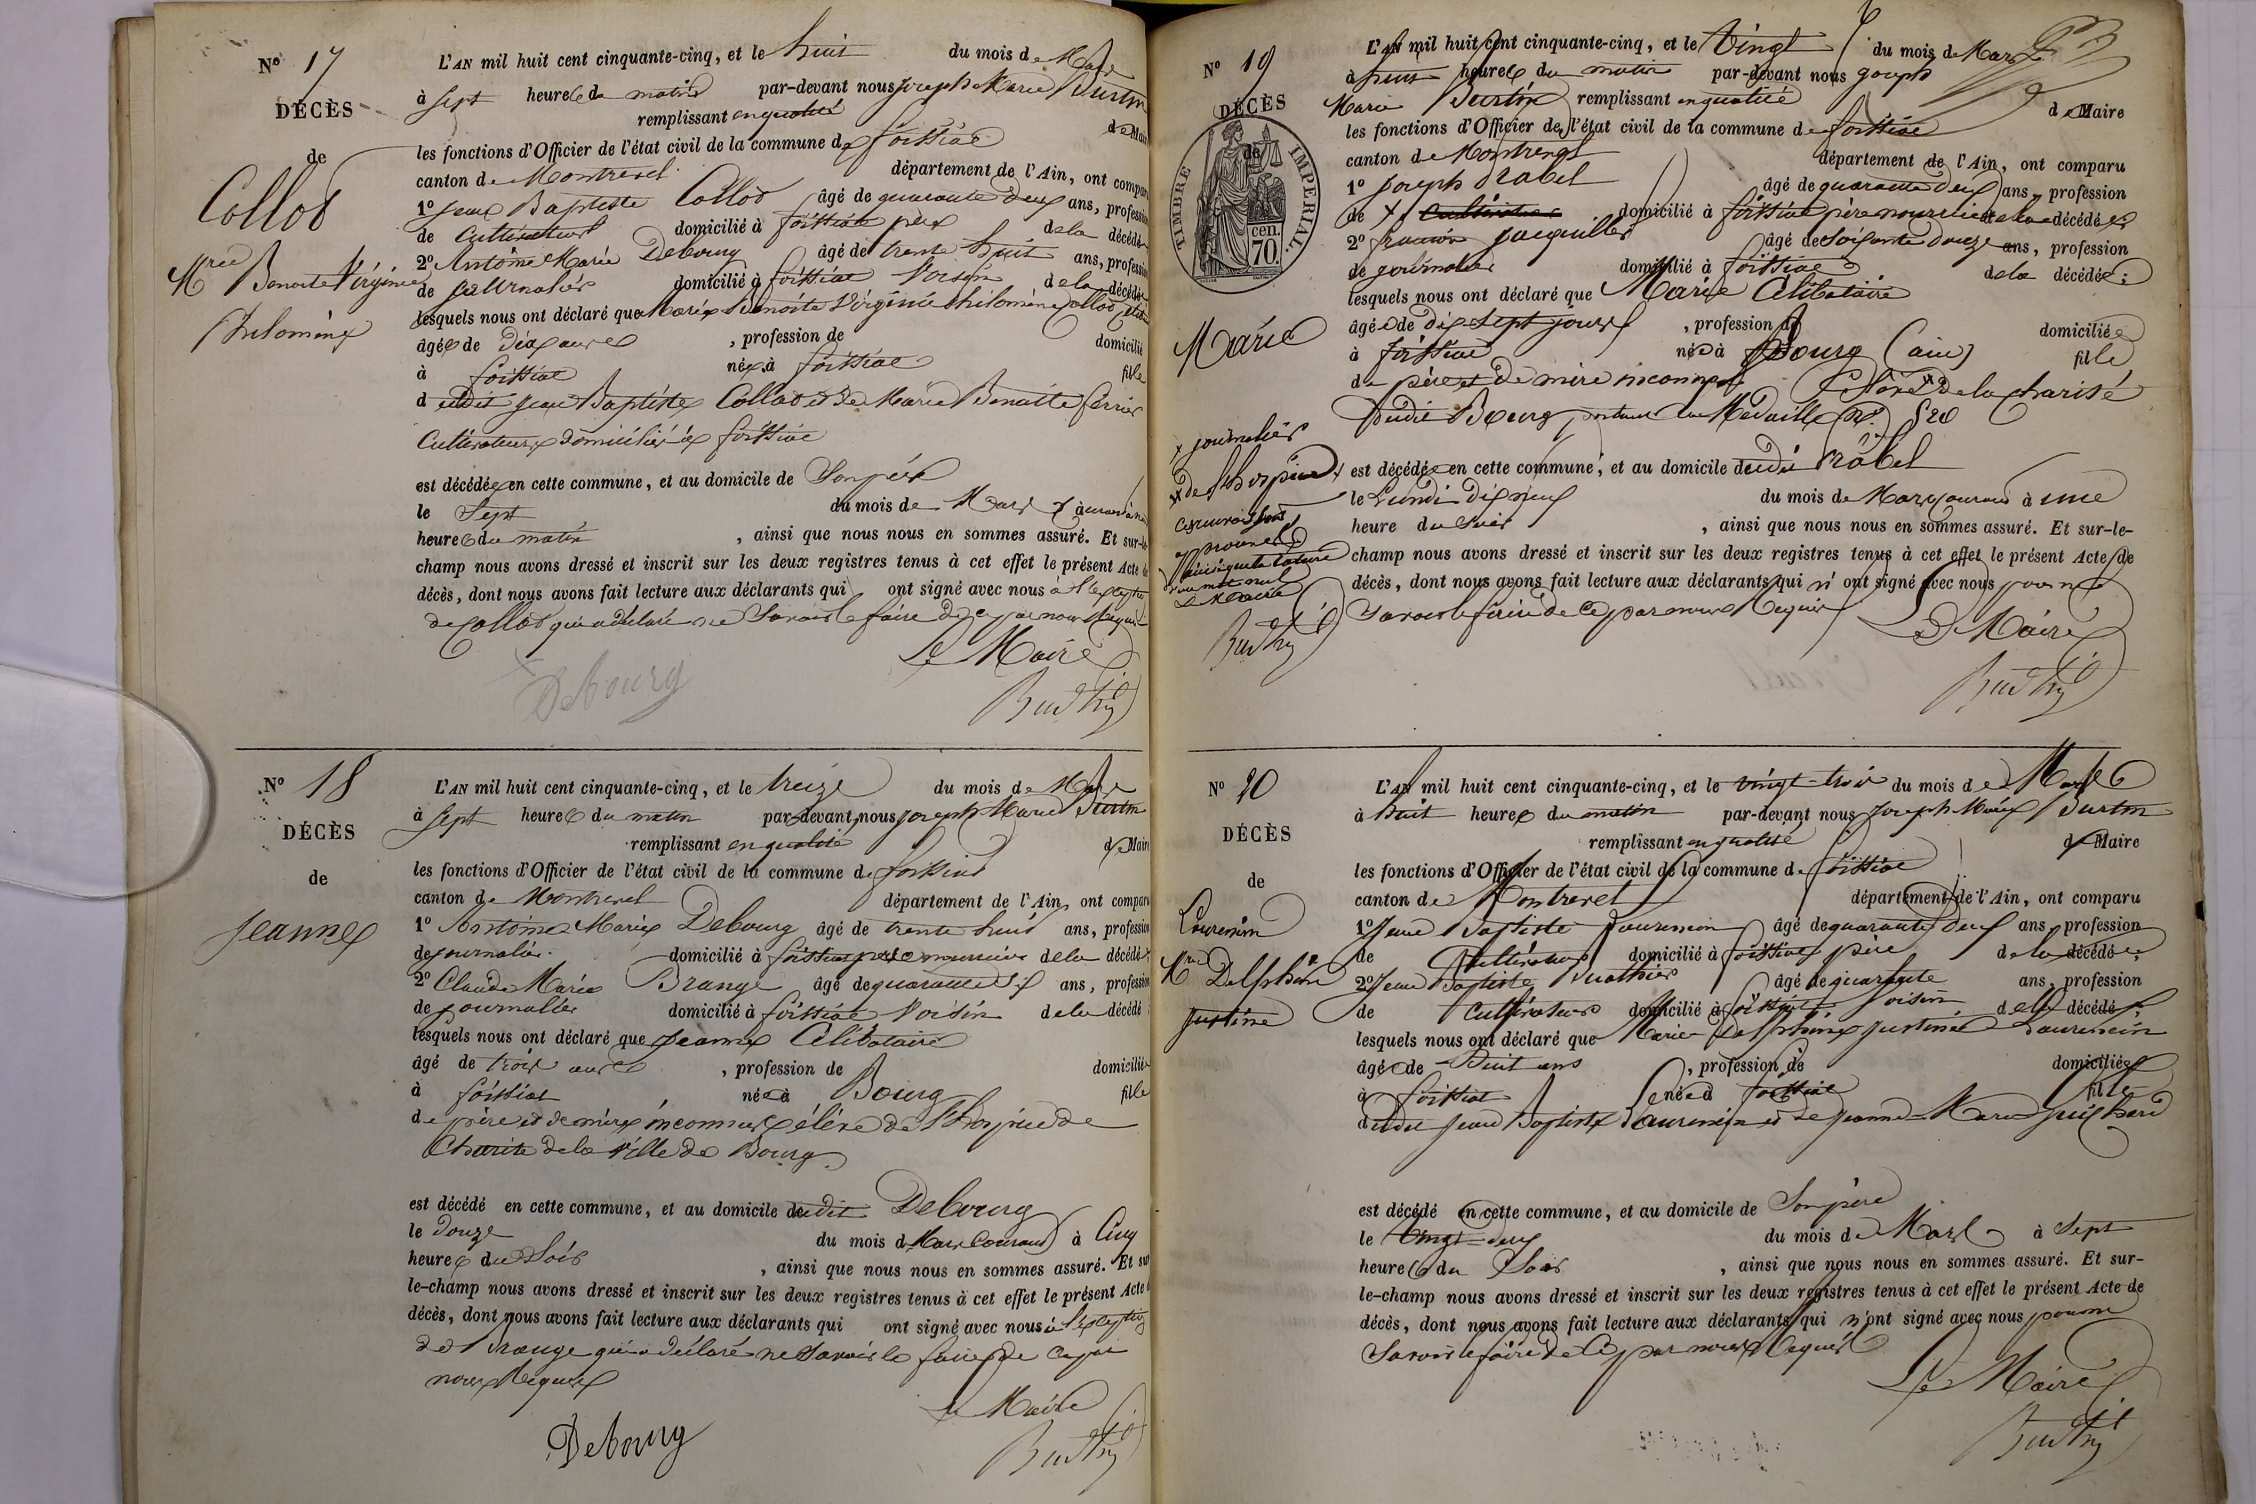 N° 17
DÉCÈS
de
Collod
Mrie Benoite Virginie
Philomène
L'AN mil huit cent cinquante-cinq, et le huit du mois de Mars
à sept heures du matin par-devant nous Joseph Marie Burtin
remplissant en qualité de Maire
les fonctions d'Officier de l'état civil de la commune de foissiat
canton de Montrevel département de l'Ain, ont comparu
1° Jean Baptiste Collod âgé de quarante deux ans, profession
de Cultivateur domicilié à foissiat père de la décédée
2° Antoine Marie Debourg âgé de trente huit ans, profession
de journalier domicilié à foissiat Voisin de la décédée
lesquels nous ont déclaré que Marie Benoite Virginie Philomène Collod
âgée de dix jours , profession de domicilié
à foissiat née à foissiat fille
dudit Jean Baptiste Collod et de Marie Benoite ferrier
Cultivateurs domiciliés à foissiat
est décédée en cette commune, et au domicile de Son père
le Sept du mois de Mars
heures du matin , ainsi que nous nous en sommes assuré. Et sur-le-
champ nous avons dressé et inscrit sur les deux registres tenus à cet effet le présent Acte de
décès, dont nous avons fait lecture aux déclarants qui ont signé avec nous à l'exception
de Collod qui a déclaré ne Savoir le faire de ce par nous Requis
Le Maire
Debourg Burtin
N° 18
DÉCÈS
de
Jeanne
L'AN mil huit cent cinquante-cinq, et le treize du mois de Mars
à Sept heures du matin par-devant nous Joseph Marie Burtin
remplissant en qualité de Maire
les fonctions d'Officier de l'état civil de la commune de foissiat
canton de Montrevel département de l'Ain, ont comparu
1° Antoine Marie Debourg âgé de trente huit ans, profession
de journalier domicilié à foissiat père nourricier de la décédée
2° Claude Marie Brange âgé de quarante six ans, profession
de journalier domicilié à foissiat Voisin de la décédé
lesquels nous ont déclaré que Jeanne Célibataire
âgé de trois ans , profession de domiciliée
à foissiat née à Bourg fille
de père et de mère inconnus élève de l'hospice de
Charité de la Ville de Bourg
est décédé en cette commune, et au domicile dudit Debourg
le douze du mois de Mars Courant à Cinq
heures du Soir , ainsi que nous nous en sommes assuré. Et sur-
le-champ nous avons dressé et inscrit sur les deux registres tenus à cet effet le présent Acte de
décès, dont nous avons fait lecture aux déclarants qui ont signé avec nous à l'exception
de Brange qui a déclaré ne Savoir le faire de ce par
nous Requis
Le Maire
Debourg Burtin
N° 19
DÉCÈS
de
TIMBRE IMPÉRIAL.
cen.
70.
Marie
x journalier
xx de l'hospice
approuvés
Le Maire
Burtin
L'AN mil huit cent cinquante-cinq, et le Vingt du mois de Mars
à huit heures du matin par-devant nous Joseph
Marie Burtin remplissant en qualité de Maire
les fonctions d'Officier de l'état civil de la commune de foissiat
canton de Montrevel département de l'Ain, ont comparu
1° Joseph Rabel âgé de quarante deux ans, profession
de x Cultivateur domicilié à foissiat père nourricier de la décédée
2° françois Jacquillet âgé de Soixante douze ans, profession
de journalier domicilié à foissiat de la décédée
lesquels nous ont déclaré que Marie Célibataire
âgée de dix sept jours , profession de domiciliée
à foissiat née à Bourg (ain) fille
de père et de mère inconnus Elève xx de la charité
dudit Bourg portant la Médaille n° 520
est décédée en cette commune, et au domicile dudit Rabel
le Lundi dix neuf du mois de Mars courant à une
heure du soir , ainsi que nous nous en sommes assuré. Et sur-le-
champ nous avons dressé et inscrit sur les deux registres tenus à cet effet le présent Acte de
décès, dont nous avons fait lecture aux déclarants qui n'ont signé avec nous pour ne
Savoir le faire de ce par nous Requis
Le Maire
Burtin
N° 20
DÉCÈS
de
Laurencin
Mrie Delphine
Justine
L'AN mil huit cent cinquante-cinq, et le vingt-trois du mois de Mars
à huit heures du matin par-devant nous Joseph Marie Burtin
remplissant en qualité de Maire
les fonctions d'Officier de l'état civil de la commune de foissiat
canton de Montrevel département de l'Ain, ont comparu
1° Jean Baptiste Laurencin âgé de quarante deux ans, profession
de Cultivateur domicilié à foissiat père de la décédée
2° Jean Baptiste Mathier âgé de quarante ans, profession
de Cultivateur domicilié à foissiat Voisin de la décédée
lesquels nous ont déclaré que Marie Delphine Justine Laurencin
âgée de huit ans , profession de domiciliée
à foissiat née à foissiat fille
dudit Jean Baptiste Laurencin et de Jeanne Marie Guichard
est décédé en cette commune, et au domicile de Son père
le Vingt-deux du mois de Mars à Sept
heures du Soir , ainsi que nous nous en sommes assuré. Et sur-
le-champ nous avons dressé et inscrit sur les deux registres tenus à cet effet le présent Acte de
décès, dont nous avons fait lecture aux déclarants qui n'ont signé avec nous pour ne
Savoir le faire de ce par nous Requis
Le Maire
Burtin